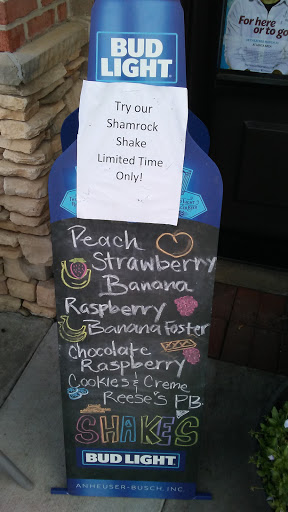 BUD
LIGHT
For here
or to go
Try our
Shamrock
Shake
Limited Time
Only!
Peach
Strawberry
Banana
Raspberry
Banana Foster
Chocolate
Raspberry
Cookies & Creme
Reese's P.B.
SHAKES
BUD LIGHT
ANHEUSER-BUSCH, INC.